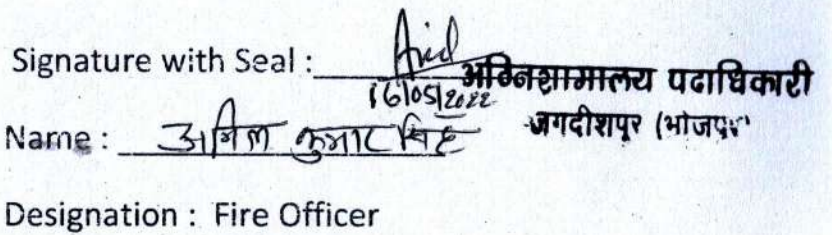 Signature with Seal : Anil
16/05/2022
अग्निशामालय पदाधिकारी
जगदीशपुर (भोजपुर
Name : अनिल कुमार सिंह
Designation : Fire Officer